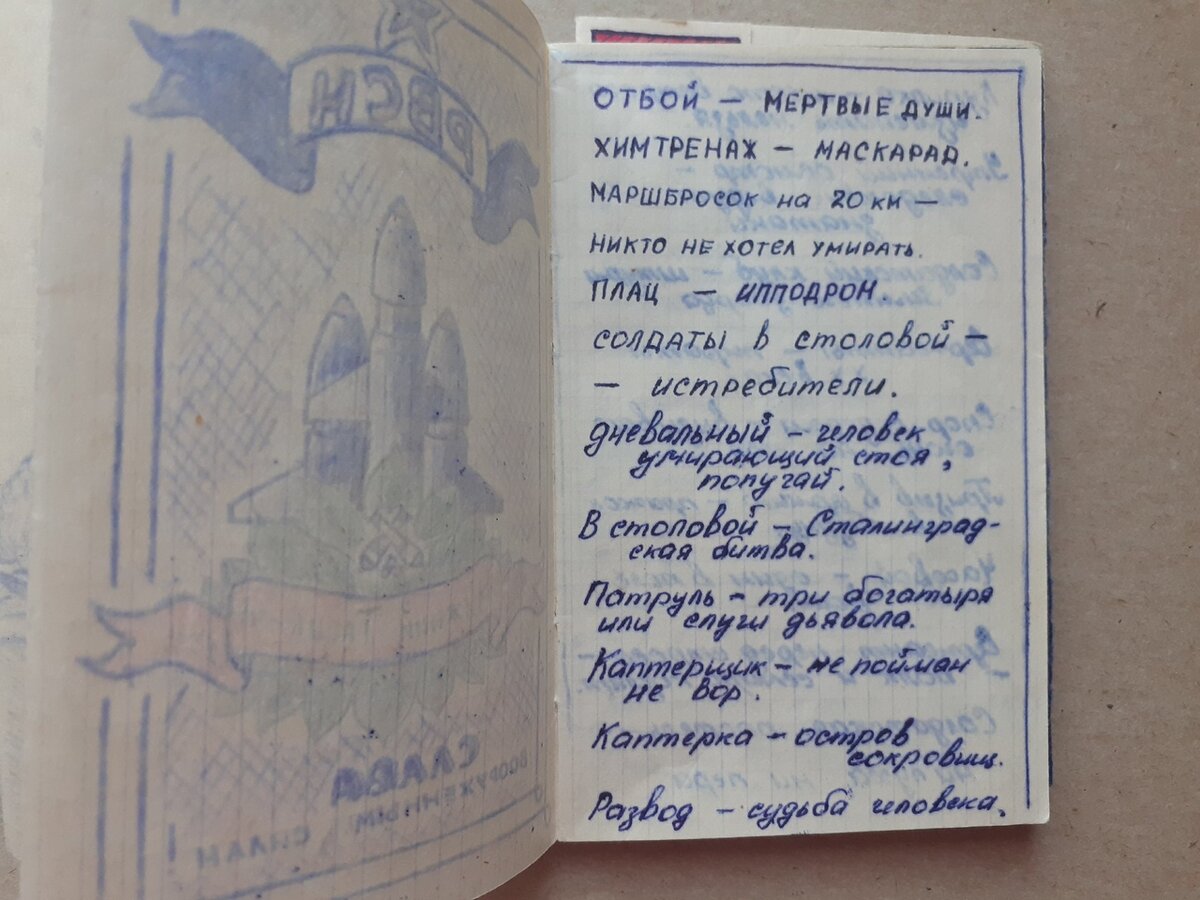 РВСН
СЛАВА
ВООРУЖЕННЫМ
СИЛАМ
ОТБОЙ — МЕРТВЫЕ ДУШИ.
ХИМТРЕНАЖ — МАСКАРАД.
МАРШБРОСОК на 20 км —
НИКТО НЕ ХОТЕЛ УМИРАТЬ.
ПЛАЦ — ИППОДРОН.
СОЛДАТЫ В СТОЛОВОЙ —
— ИСТРЕБИТЕЛИ.
дневальный — человек
умирающий стоя,
попугай.
В столовой — Сталинград-
ская битва.
Патруль — три богатыря
или слуги дьявола.
Каптерщик — не пойман
не вор.
Каптерка — остров
сокровищ.
Развод — судьба человека,